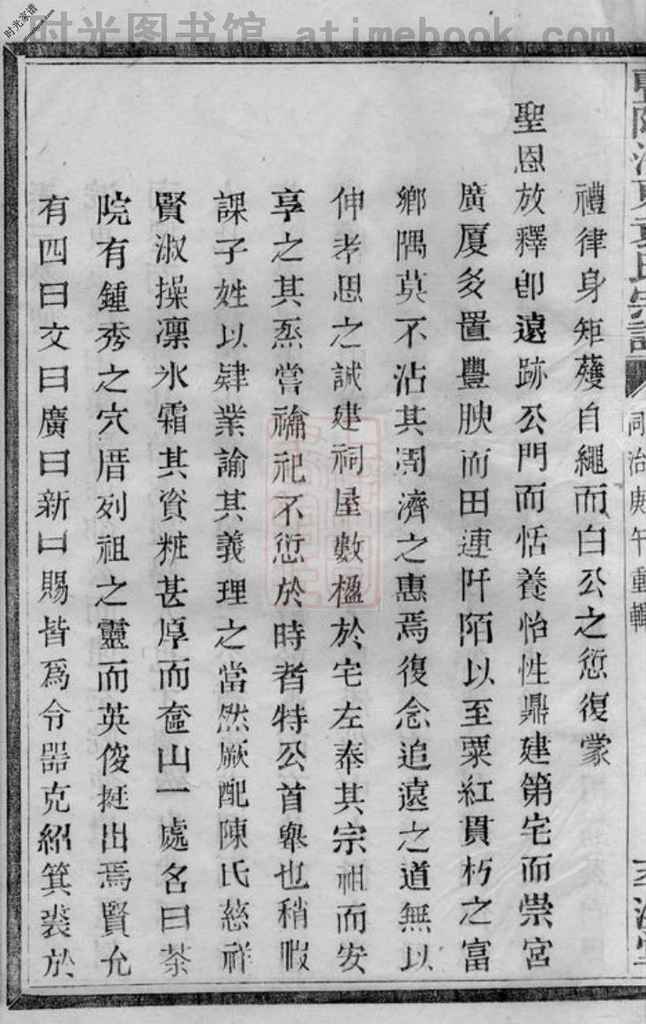 时光图书馆 - atimebook.com
时光家谱
氏宗譜 同治庚午重輯
禮律身矩矱自繩而白公之愆復蒙
聖恩放釋卽遠跡公門而恬養怡性鼎建第宅而崇宮
廣厦爰置豐腴而田連阡陌以至粟紅貫朽之富
鄉隅莫不沾其周濟之惠焉復念追遠之道無以
伸孝思之誠建祠屋數楹於宅左奉其宗祖而安
享之其烝嘗禴祀不愆於時者特公首舉也稍暇
課子姓以肄業諭其義理之當然厥配陳氏慈祥
賢淑操凛氷霜其資粧甚厚而奩山一處名曰茶
院有鍾秀之穴厝列祖之靈而英俊挺出焉賢允
有四曰文曰廣曰新曰賜皆爲令器克紹箕裘於